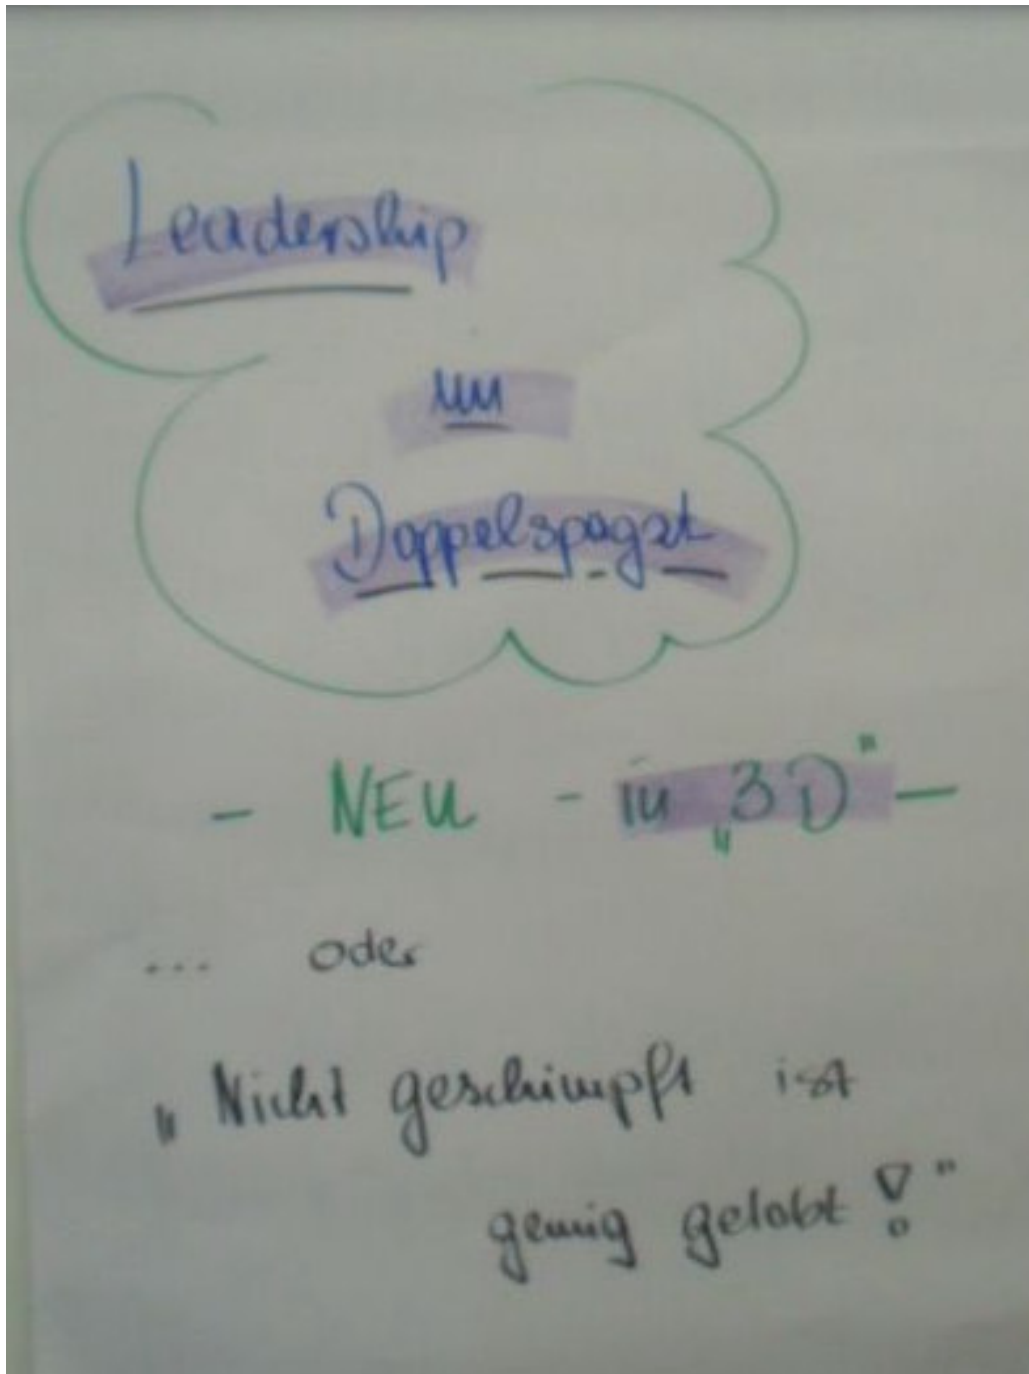 Leadership
im
Doppelspagat
- NEU - in „3D" -
... oder
„Nicht geschimpft ist
genug gelobt!"